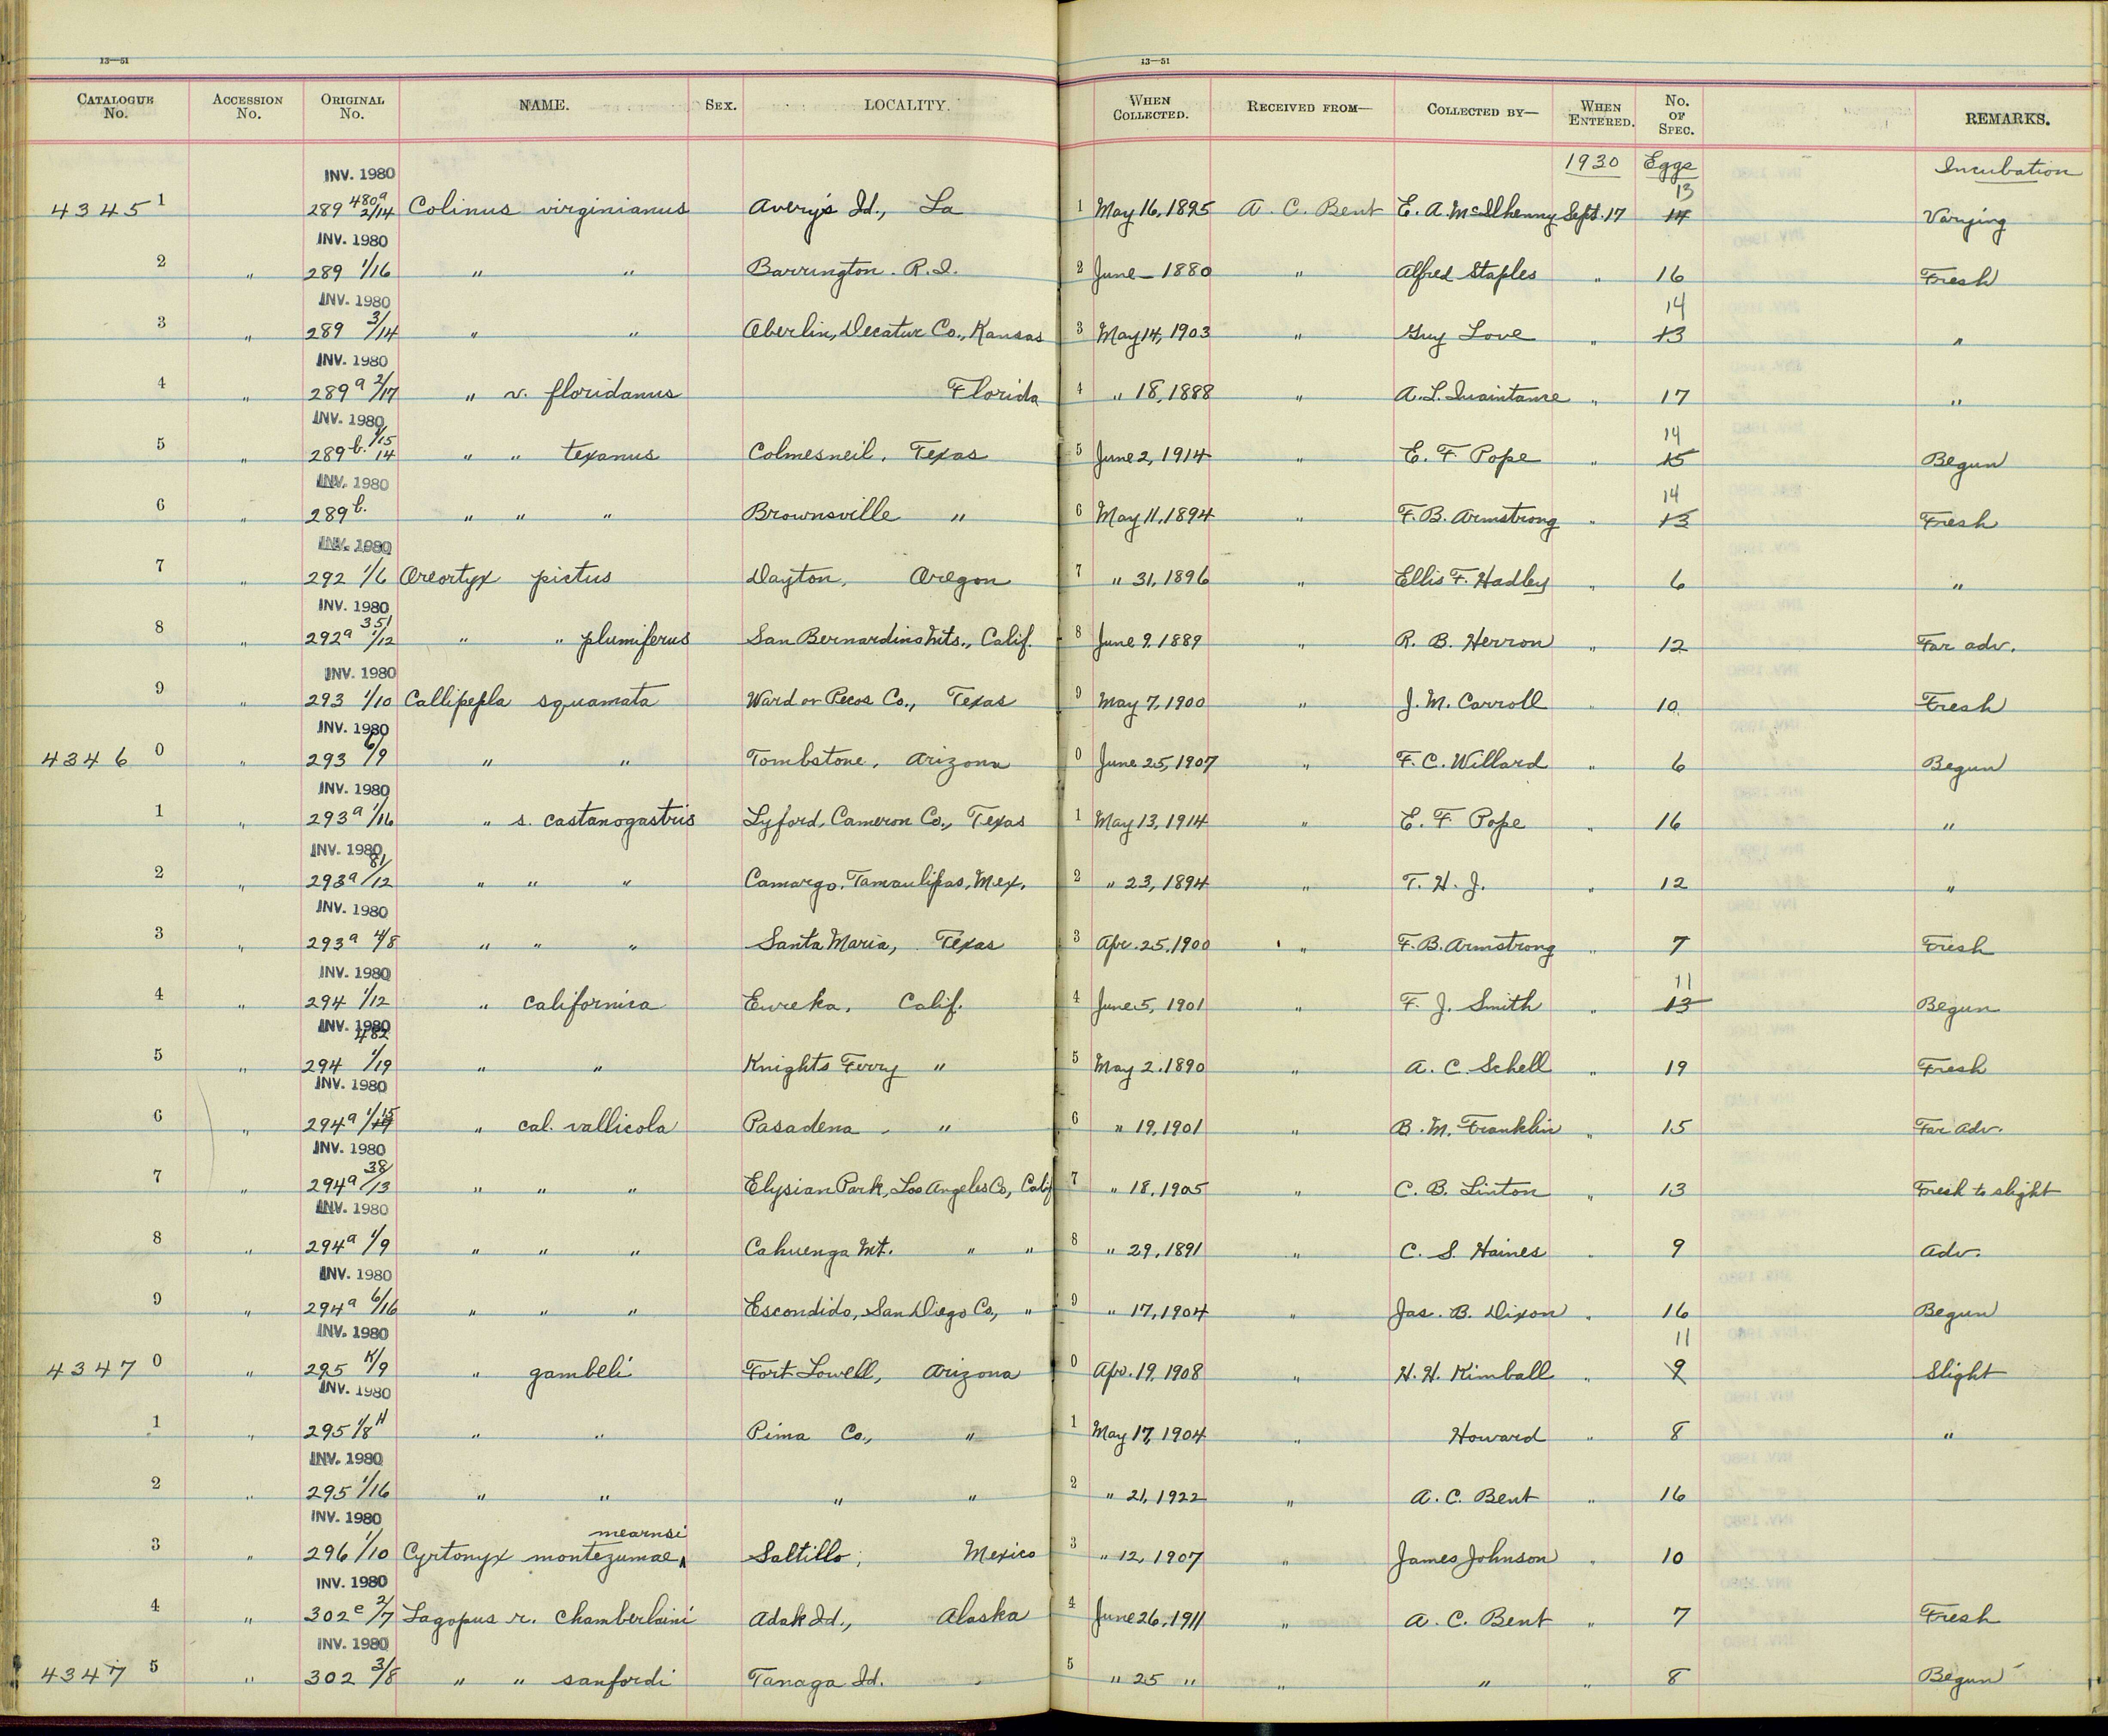 13—51 13—51
CATALOGUE No. ACCESSION No. ORIGINAL No. NAME. SEX. LOCALITY. WHEN COLLECTED. RECEIVED FROM— COLLECTED BY— WHEN ENTERED. No. OF SPEC. REMARKS.
INV. 1980 1930 Eggs Incubation
4345 1 289 480a 2/14 Colinus virginianus Avery's Id., La 1 May 16, 1895 A. C. Bent E. A. McIlhenny Sept. 17 13 14 Varying
INV. 1980
2 " 289 1/16 " " Barrington. R.I. 2 June — 1880 " Alfred Staples " 16 Fresh
INV. 1980
3 " 289 3/14 " " Oberlin, Decatur Co., Kansas 3 May 14, 1903 " Guy Love " 14 13 "
INV. 1980
4 " 289a 2/17 " v. floridanus Florida 4 " 18, 1888 " A. L. Quaintance " 17 "
INV. 1980
5 " 289b. 1/15 14 " " texanus Colmesneil, Texas 5 June 2, 1914 " E. F. Pope " 14 15 Begun
INV. 1980
6 " 289b. " " " Brownsville " 6 May 11, 1894 " F. B. Armstrong " 14 13 Fresh
INV. 1980
7 " 292 1/6 Oreortyx pictus Dayton, Oregon 7 " 31, 1896 " Ellis F. Hadley " 6 "
INV. 1980
8 " 292a 351 1/12 " " plumiferus San Bernardino Mts., Calif. 8 June 9, 1889 " R. B. Herron " 12 Far adv.
INV. 1980
9 " 293 1/10 Callipepla squamata Ward or Pecos Co., Texas 9 May 7, 1900 " J. M. Carroll " 10 Fresh
INV. 1980
4346 0 " 293 6/9 " " Tombstone, Arizona 0 June 25, 1907 " F. C. Willard " 6 Begun
INV. 1980
1 " 293a 1/16 " s. castanogastris Lyford, Cameron Co., Texas 1 May 13, 1914 " E. F. Pope " 16 "
INV. 1980
2 " 293a 81/12 " " " Camargo, Tamaulipas, Mex. 2 " 23, 1894 " T. H. J. " 12 "
INV. 1980
3 " 293a 4/8 " " " Santa Maria, Texas 3 Apr. 25, 1900 " F. B. Armstrong " 7 Fresh
INV. 1980
4 " 294 1/12 " californica Eureka, Calif. 4 June 5, 1901 " F. J. Smith " 11 13 Begun
INV. 1980
5 " 294 482 1/19 " " Knights Ferry " 5 May 2, 1890 " A. C. Schell " 19 Fresh
INV. 1980
6 " 294a 1/15 " cal. vallicola Pasadena " 6 " 19, 1901 " B. M. Franklin " 15 Far adv.
INV. 1980
7 " 294a 38/13 " " " Elysian Park, Los Angeles Co, Calif 7 " 18, 1905 " C. B. Linton " 13 Fresh to slight
INV. 1980
8 " 294a 1/9 " " " Cahuenga Mt. " " 8 " 29, 1891 " C. S. Haines " 9 Adv.
INV. 1980
9 " 294a 6/16 " " " Escondido, San Diego Co, " 9 " 17, 1904 " Jas. B. Dixon " 16 Begun
INV. 1980
4347 0 " 295 K/9 " gambeli Fort Lowell, Arizona 0 Apr. 19, 1908 " H. H. Kimball " 11 9 Slight
INV. 1980
1 " 295 1/8 H " " Pima Co., " 1 May 17, 1904 " Howard " 8 "
INV. 1980
2 " 295 1/16 " " " " 2 " 21, 1922 " A. C. Bent " 16
INV. 1980
3 " 296 1/10 Cyrtonyx montezumae mearnsi Saltillo, Mexico 3 " 12, 1907 " James Johnson " 10
INV. 1980
4 " 302e 2/7 Lagopus r. chamberlaini Adak Id., Alaska 4 June 26, 1911 " A. C. Bent " 7 Fresh
INV. 1980
4347 5 " 302 3/8 " " sanfordi Tanaga Id. 5 " 25 " " " " 8 Begun